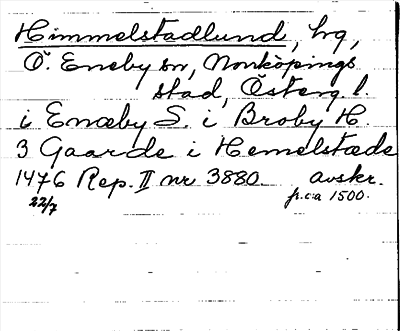 Himmelstadlund, hg,
Ö. Eneby sn, Norrköpings
stad, Österg l.
i Enæby S. i Broby H.
3 Gaarde i Hemelstæde
1476 Rep. II nr 3880. avskr.
22/7 fr. c:a 1500.